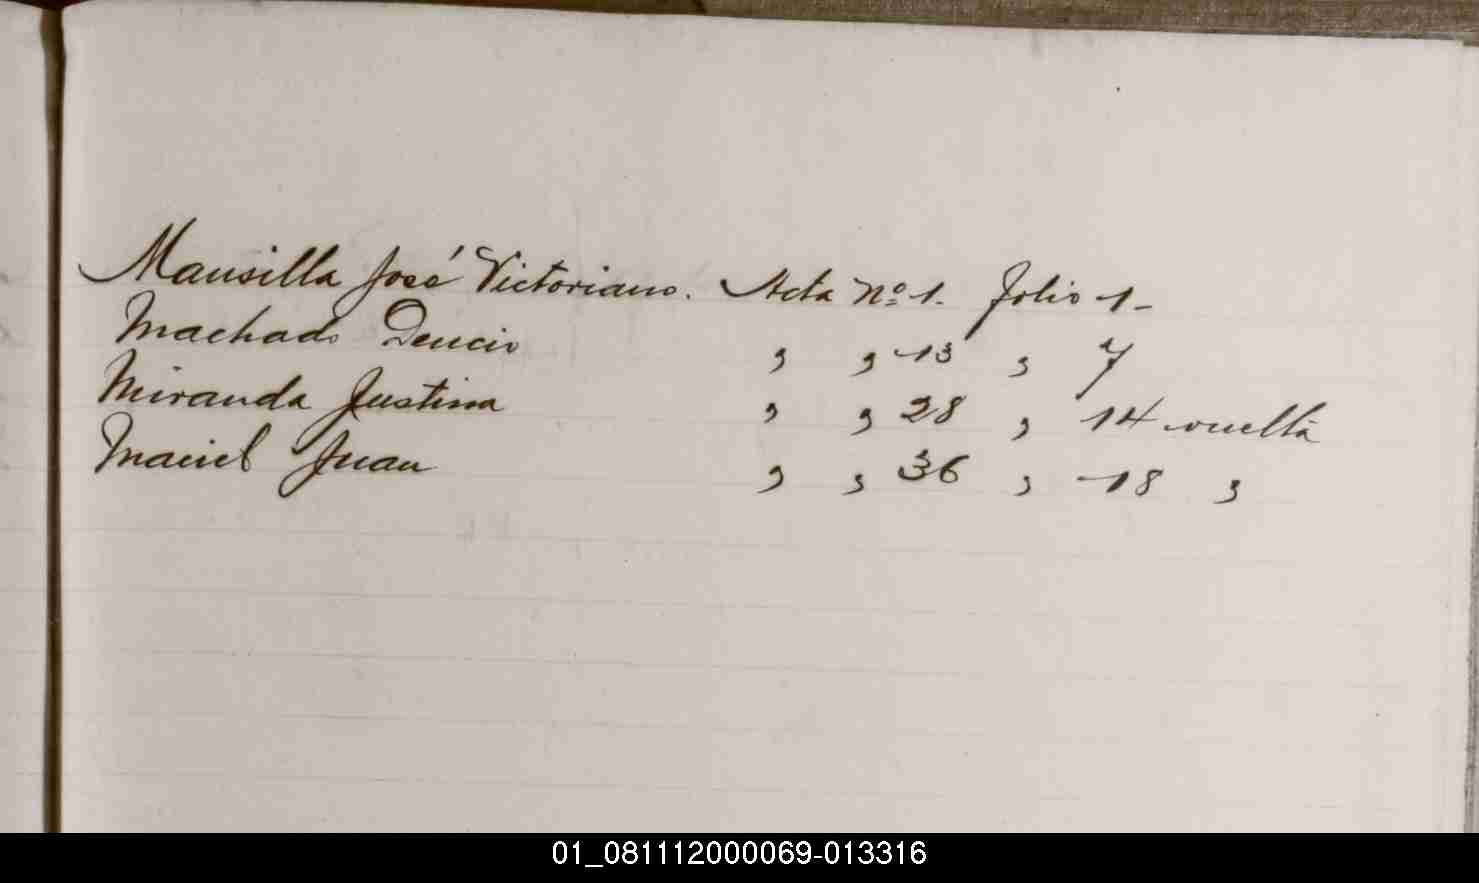 Mansilla José Victoriano. Acta Nº 1. folio 1-
Machado Deucio , , 13 , 7
Miranda Justina , , 28 , 14 vuelta
Maciel Juan , , 36 , 18 ,
01_081112000069-013316